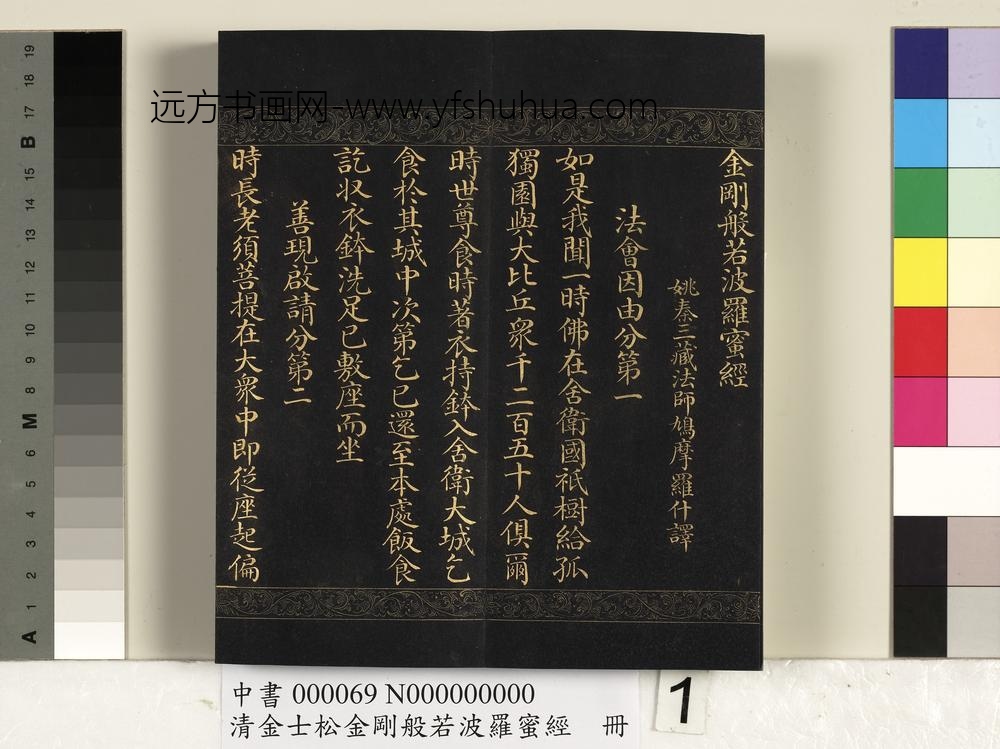 远方书画网-www.yfshuhua.com
金剛般若波羅蜜經
姚秦三藏法師鳩摩羅什譯
法會因由分第一
如是我聞一時佛在舍衛國祇樹給孤
獨園與大比丘衆千二百五十人俱爾
時世尊食時著衣持鉢入舍衛大城乞
食於其城中次第乞已還至本處飯食
訖収衣鉢洗足已敷座而坐
善現啟請分第二
時長老須菩提在大衆中即從座起偏
中書 000069 N000000000
清金士松金剛般若波羅蜜經 冊
1
A 1 2 3 4 5 6 M 8 9 10 11 12 13 14 15 B 17 18 19